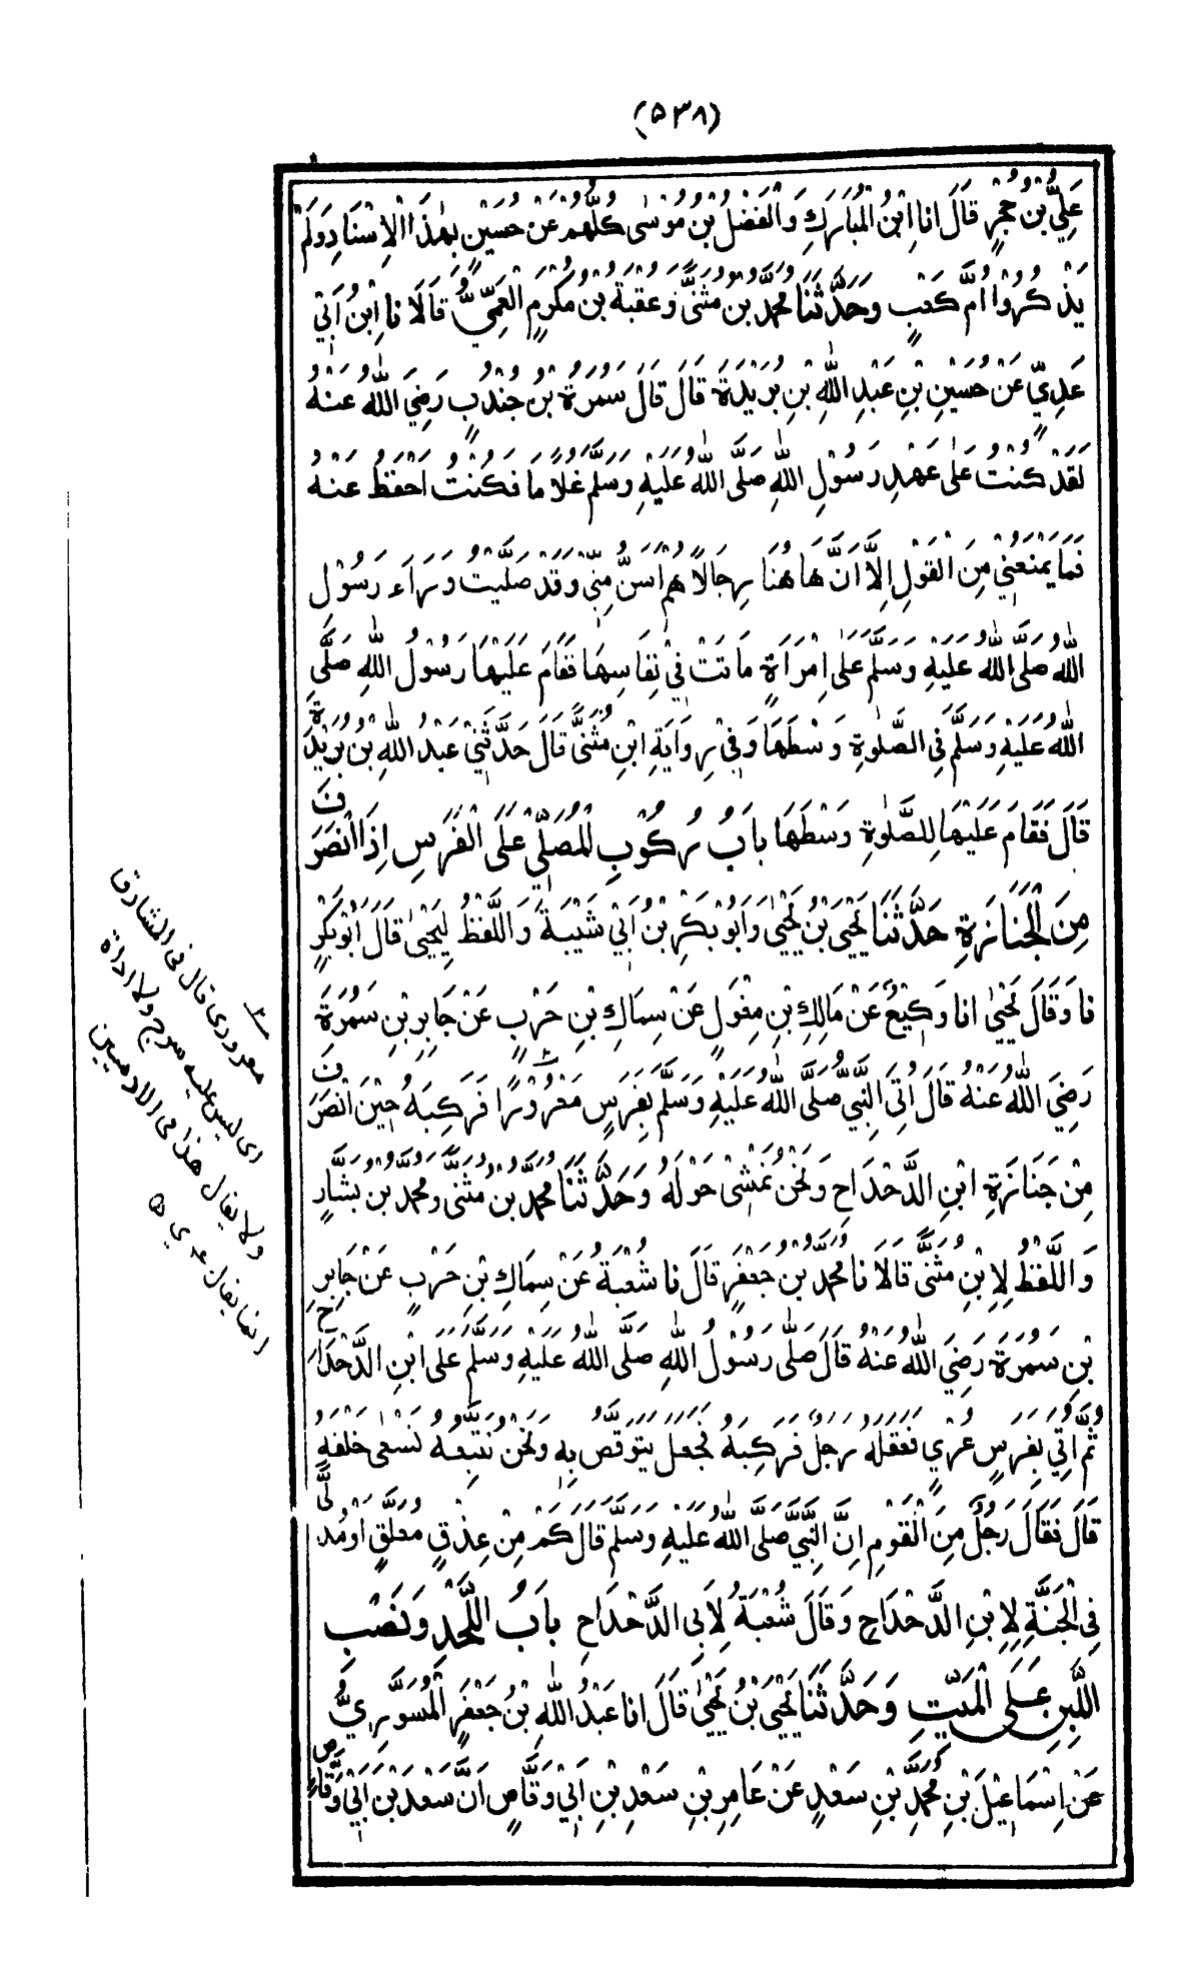 (٥٣٨)
عَلِيُّ بْنُ حُجْرٍ قَالَ انا ابْنُ الْمُبَارَكِ وَالْفَضْلُ بْنُ مُوْسٰى كُلُّهُمْ عَنْ حُسَيْنٍ بِهٰذَا الْاِسْنَادِ وَلَمْ
يَذْكُرُوْا اُمَّ كَعْبٍ وَحَدَّثَنَا مُحَمَّدُ بْنُ مُثَنًّى وَعُقْبَةُ بْنُ مُكْرَمٍ الْعَمِّيُّ قَالَا نا ابْنُ اَبِيْ
عَدِيٍّ عَنْ حُسَيْنٍ بْنِ عَبْدِ اللّٰهِ بْنِ بُرَيْدَةَ قَالَ قَالَ سَمُرَةُ بْنُ جُنْدُبٍ رَضِيَ اللّٰهُ عَنْهُ
لَقَدْ كُنْتُ عَلٰى عَهْدِ رَسُوْلِ اللّٰهِ صَلَّى اللّٰهُ عَلَيْهِ وَسَلَّمَ غُلَامًا فَكُنْتُ اَحْفَظُ عَنْهُ
فَمَا يَمْنَعُنِيْ مِنَ الْقَوْلِ اِلَّا اَنَّ هَاهُنَا رِجَالًا هُمْ اَسَنُّ مِنِّيْ وَقَدْ صَلَّيْتُ وَرَاءَ رَسُوْلِ
اللّٰهِ صَلَّى اللّٰهُ عَلَيْهِ وَسَلَّمَ عَلٰى اِمْرَاَةٍ مَاتَتْ فِيْ نِفَاسِهَا فَقَامَ عَلَيْهَا رَسُوْلُ اللّٰهِ صَلَّى
اللّٰهُ عَلَيْهِ وَسَلَّمَ فِى الصَّلٰوةِ وَسْطَهَا وَفِيْ رِوَايَةِ ابْنِ مُثَنًّى قَالَ حَدَّثَنِيْ عَبْدُ اللّٰهِ بْنُ بُرَيْدَةَ
قَالَ فَقَامَ عَلَيْهَا لِلصَّلٰوةِ وَسْطَهَا بَابُ رُكُوْبِ الْمُصَلِّيْ عَلَى الْفَرَسِ اِذَا انْصَرَفَ
مِنَ الْجَنَازَةِ حَدَّثَنَا يَحْيَى بْنُ يَحْيٰى وَاَبُوْ بَكْرِ بْنُ اَبِيْ شَيْبَةَ وَاللَّفْظُ لِيَحْيٰى قَالَ اَبُوْ بَكْرٍ
نا وَقَالَ يَحْيٰى انا وَكِيْعٌ عَنْ مَالِكِ بْنِ مِغْوَلٍ عَنْ سِمَاكِ بْنِ حَرْبٍ عَنْ جَابِرِ بْنِ سَمُرَةَ
رَضِيَ اللّٰهُ عَنْهُ قَالَ اُتِيَ النَّبِيُّ صَلَّى اللّٰهُ عَلَيْهِ وَسَلَّمَ بِفَرَسٍ مَعْرُوْرًا فَرَكِبَهُ حِيْنَ انْصَرَفَ
مِنْ جَنَازَةِ ابْنِ الدَّحْدَاحِ وَنَحْنُ نَمْشِيْ حَوْلَهُ وَحَدَّثَنَا مُحَمَّدُ بْنُ مُثَنًّى وَمُحَمَّدُ بْنُ بَشَّارٍ
وَاللَّفْظُ لِابْنِ مُثَنًّى قَالَا نا مُحَمَّدُ بْنُ جَعْفَرٍ قَالَ نا شُعْبَةُ عَنْ سِمَاكِ بْنِ حَرْبٍ عَنْ جَابِرِ
بْنِ سَمُرَةَ رَضِيَ اللّٰهُ عَنْهُ قَالَ صَلّٰى رَسُوْلُ اللّٰهِ صَلَّى اللّٰهُ عَلَيْهِ وَسَلَّمَ عَلَى ابْنِ الدَّحْدَاحِ
ثُمَّ اُتِيَ بِفَرَسٍ عُرْيٍ فَعَقَلَهُ رَجُلٌ فَرَكِبَهُ فَجَعَلَ يَتَوَقَّصُ بِهِ وَنَحْنُ نَتَّبِعُهُ نَسْعٰى خَلْفَهُ
قَالَ فَقَالَ رَجُلٌ مِنَ الْقَوْمِ اِنَّ النَّبِيَّ صَلَّى اللّٰهُ عَلَيْهِ وَسَلَّمَ قَالَ كَمْ مِنْ عِذْقٍ مُعَلَّقٍ اَوْ مُدَلًّى
فِي الْجَنَّةِ لِابْنِ الدَّحْدَاحِ وَقَالَ شُعْبَةُ لِاَبِي الدَّحْدَاحِ بَابُ اللَّحْدِ وَنَصْبِ
اللَّبِنِ عَلَى الْمَيِّتِ وَحَدَّثَنَا يَحْيَى بْنُ يَحْيٰى قَالَ انا عَبْدُ اللّٰهِ بْنُ جَعْفَرٍ الْمِسْوَرِيُّ
عَنْ اِسْمَاعِيْلَ بْنِ مُحَمَّدِ بْنِ سَعْدٍ عَنْ عَامِرِ بْنِ سَعْدِ بْنِ اَبِيْ وَقَّاصٍ اَنَّ سَعْدَ بْنَ اَبِيْ وَقَّاصٍ
معرورى قال فى المشارق
اى ليس عليه سرج ولا اداة
ولا يقال هذا فى الادميين
انما يقال